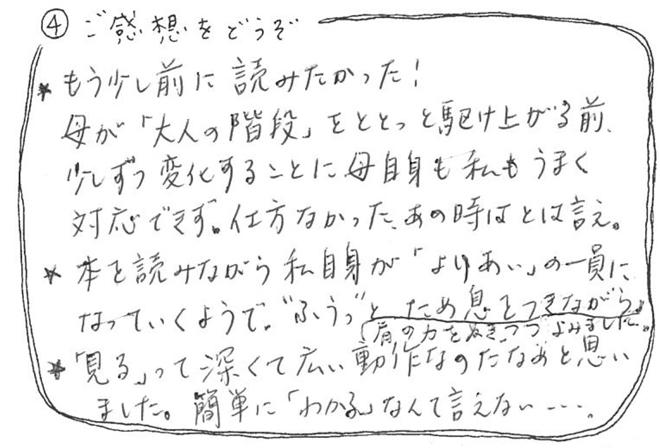 ④ ご感想をどうぞ
★もう少し前に読みたかった!
母が「大人の階段」をととっと駆け上がる前、
少しずつ変化することに母自身も私もうまく
対応できず。仕方なかった、あの時はとは言え。
★本を読みながら私自身が「よりあい」の一員に
なっていくようで。"ふうっ"と ため息をつきながら。
肩の力をぬきつつ よみました。
★「見る」って深くて広い動作なのだなあと思い
ました。簡単に「わかる」なんて言えない……。